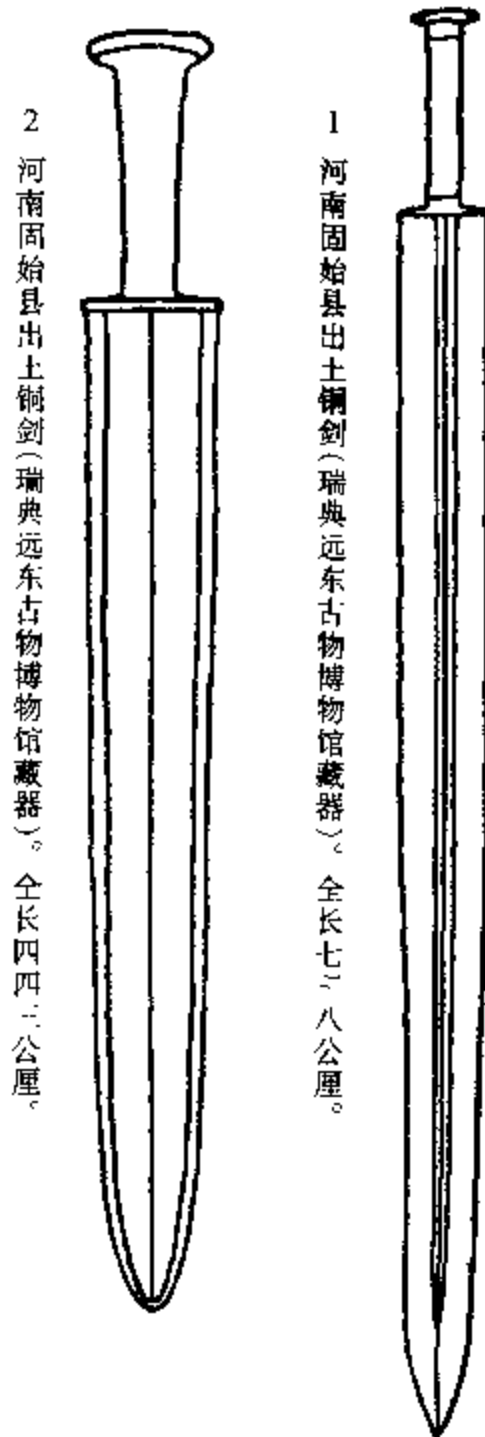 1 河南固始县出土铜剑(瑞典远东古物博物馆藏器)。全长七八公厘。
2 河南固始县出土铜剑(瑞典远东古物博物馆藏器)。全长四四三公厘。